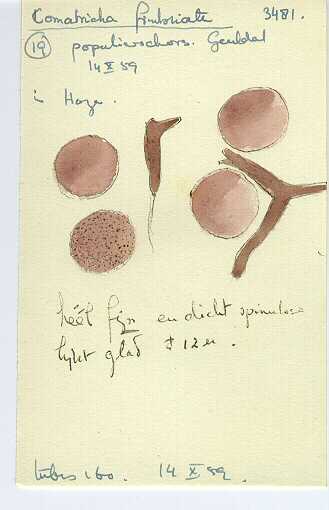 Comatricha fimbriata 3481.
19 populierschors. Geuldal
14 X 59
in Hoge.
héél fijn en dicht spinulose
lijkt glad ± 12 u.
tubis 160. 14 X 59.